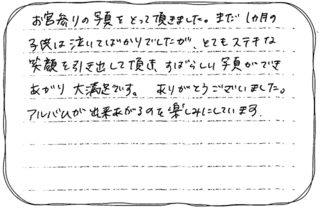 お宮参りの写真をとって頂きました。まだ1ヵ月の
子供は泣いてばかりでしたが、とてもステキな
笑顔を引き出して頂き すばらしい写真ができ
あがり 大満足です。 ありがとうございました。
アルバムが出来あがるのを楽しみにしています。